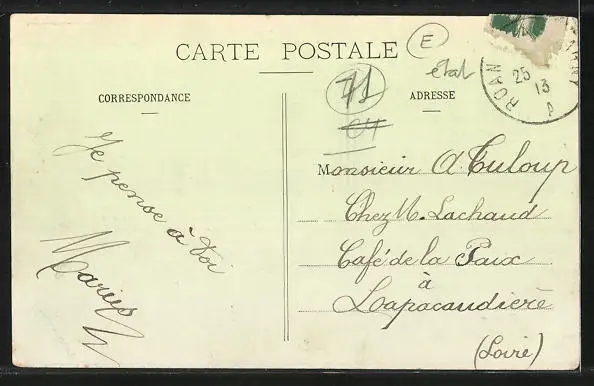 CARTE POSTALE
E
état
71
64
ROAN
25
13
A
CORRESPONDANCE
ADRESSE
Je pense à Toi
Marius
Monsieur A. Tuloup
Chez M. Lachaud
Café de la Paix
à
Lapacaudière
(Loire)